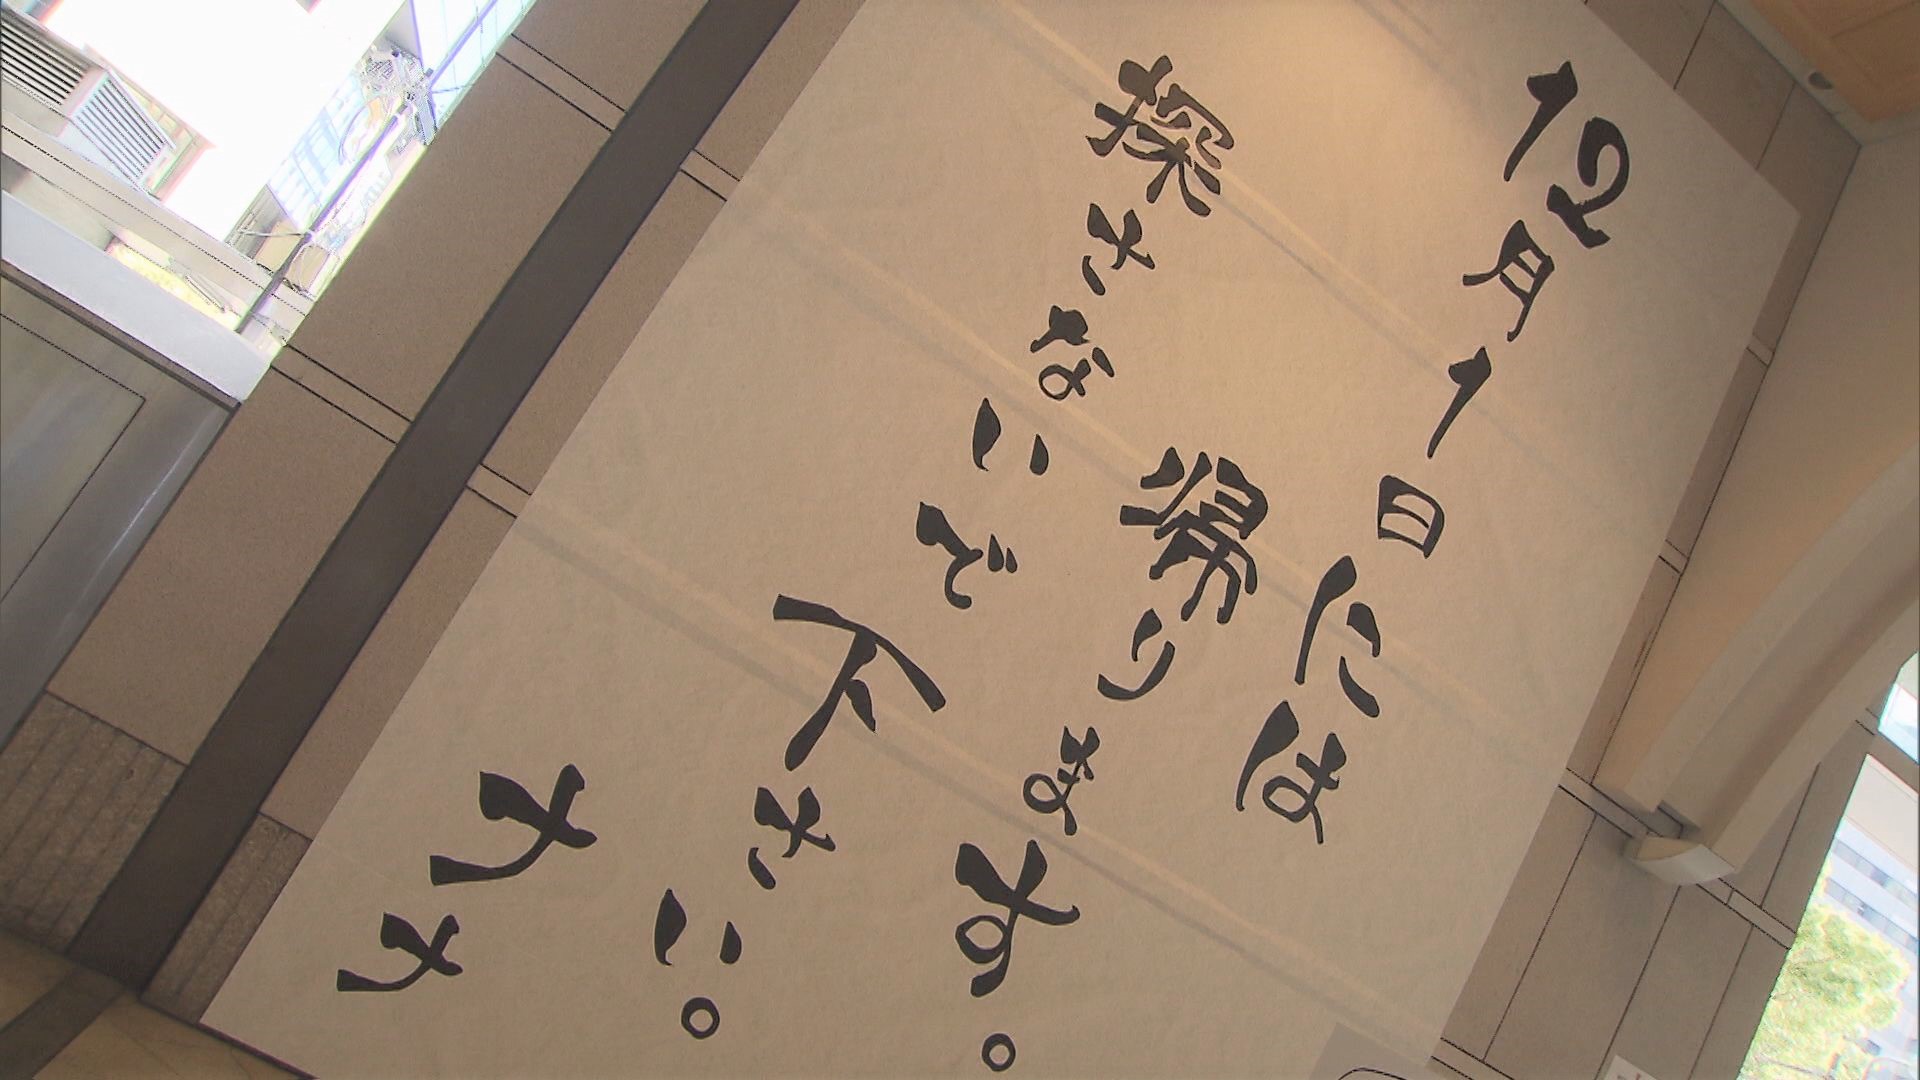 12月1日には
帰ります。
探さないで
下さい。
ナナ